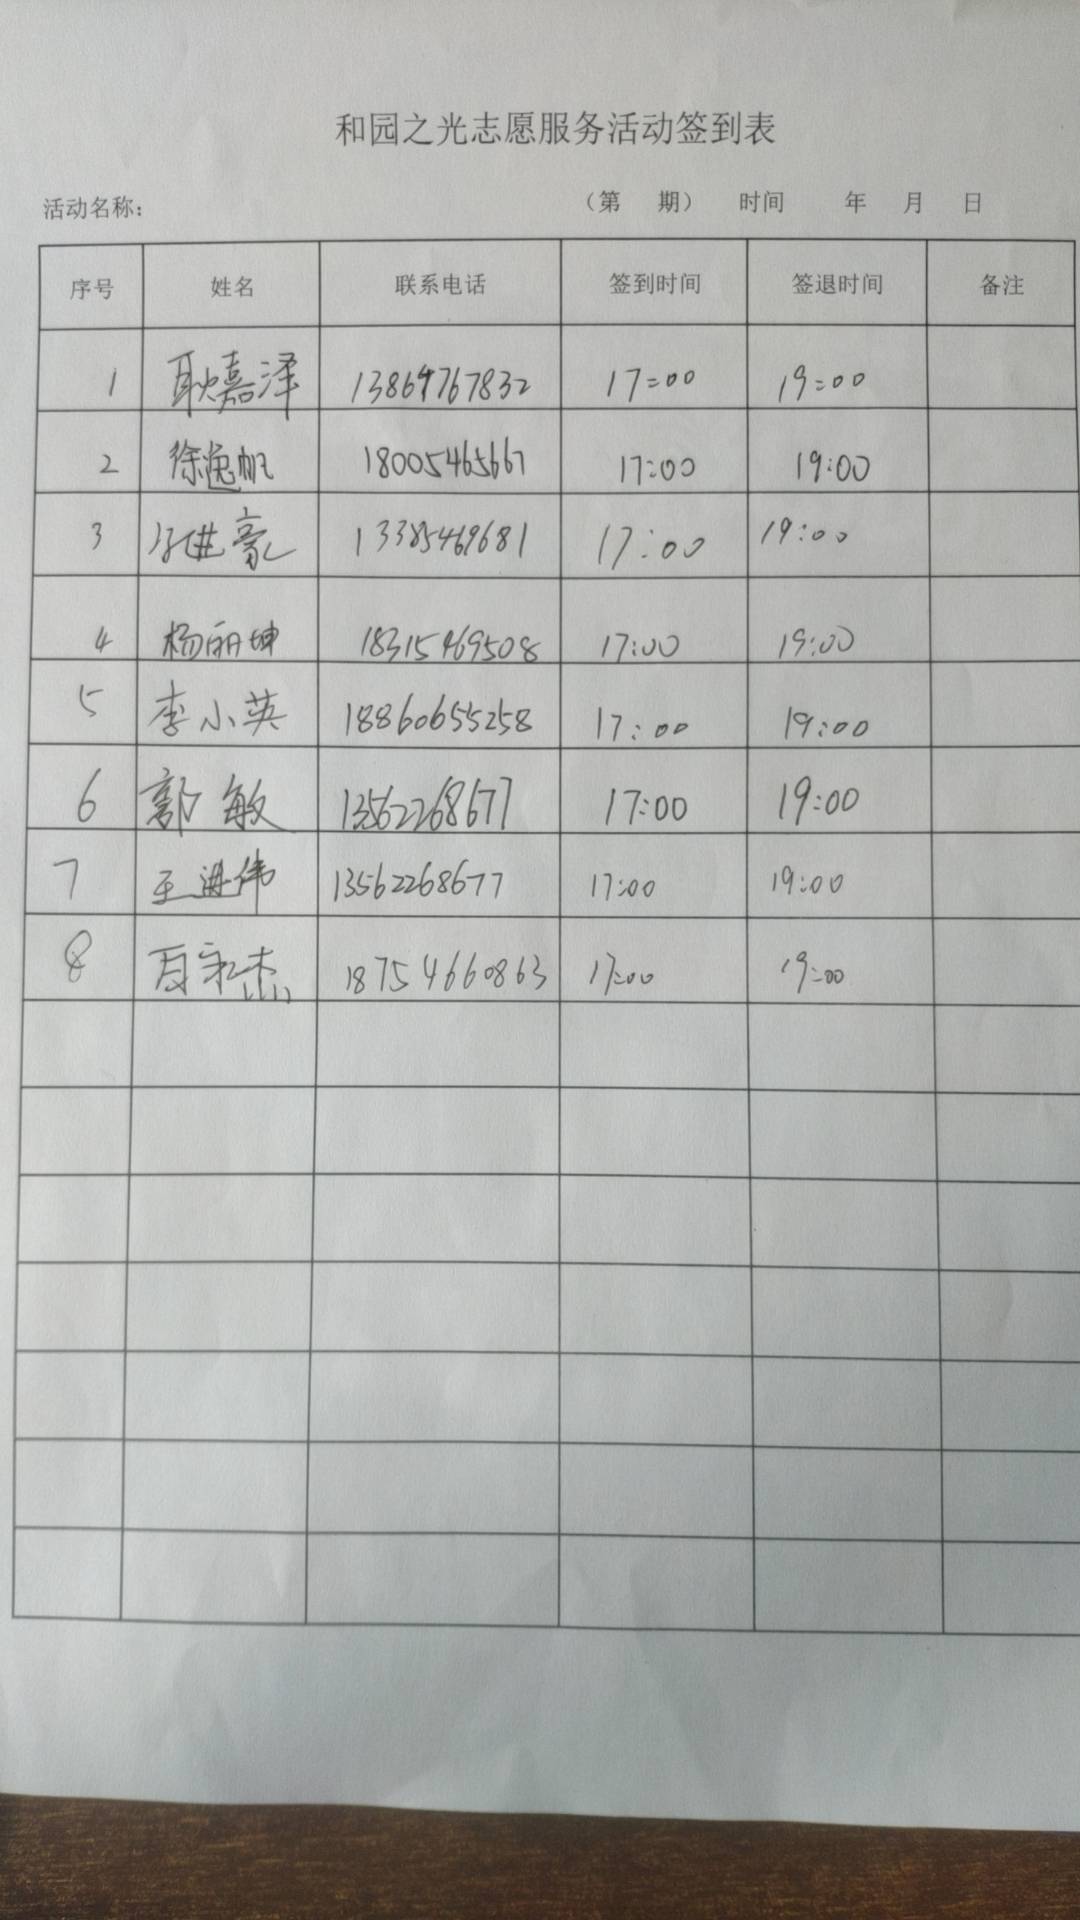 和园之光志愿服务活动签到表
活动名称： （第 期） 时间 年 月 日
序号 姓名 联系电话 签到时间 签退时间 备注
1 耿嘉泽 13864767832 17:00 19:00
2 徐逸帆 18005465667 17:00 19:00
3 进豪 13385469681 17:00 19:00
4 杨丽坤 18315469508 17:00 19:00
5 李小英 18860655258 17:00 19:00
6 郭敏 13562268677 17:00 19:00
7 王进伟 13562268677 17:00 19:00
8 杰 18754660863 17:00 19:00